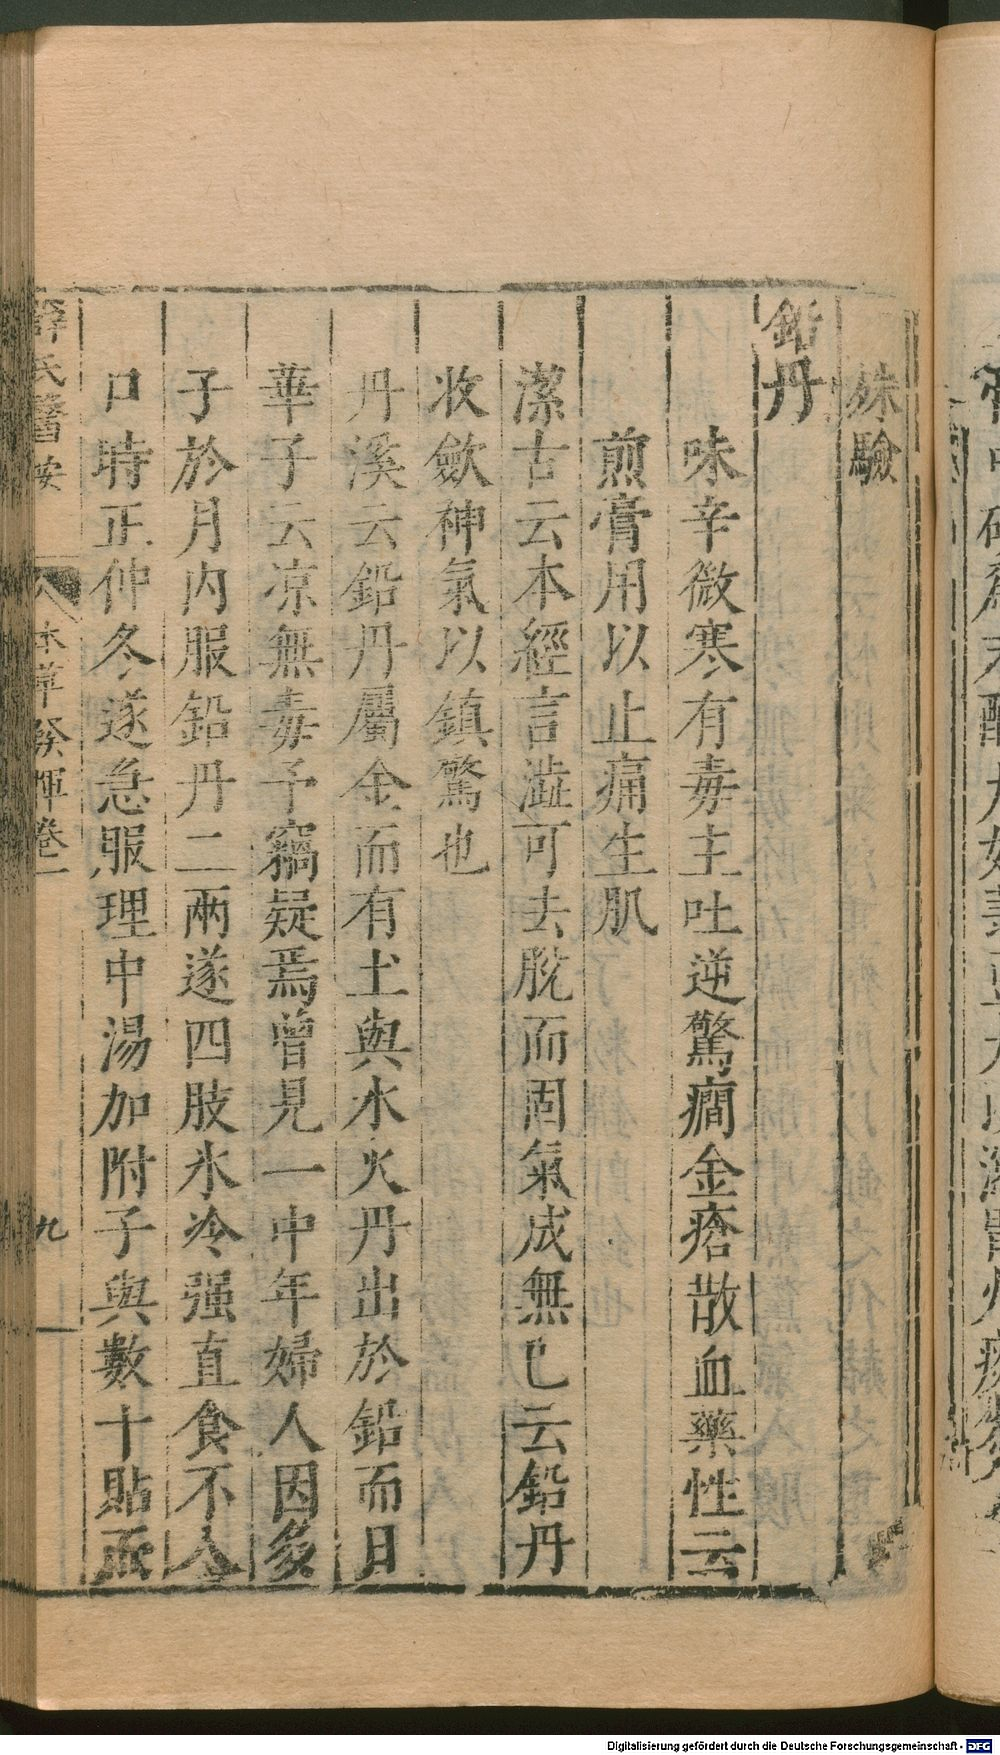 殊驗
鉛丹
味辛微寒有毒主吐逆驚癎金瘡散血藥性云
煎膏用以止痛生肌
潔古云本經言澁可去脫而固氣成無已云鉛丹
收斂神氣以鎮驚也
丹溪云鉛丹屬金而有土與水火丹出於鉛而日
華子云凉無毒予竊疑焉曾見一中年婦人因多
子於月内服鉛丹二兩遂四肢氷冷强直食不入
口時正仲冬遂急服理中湯加附子與數十貼而
薛氏醫按
本草發揮卷一
九
Digitalisierung gefördert durch die Deutsche Forschungsgemeinschaft - DFG